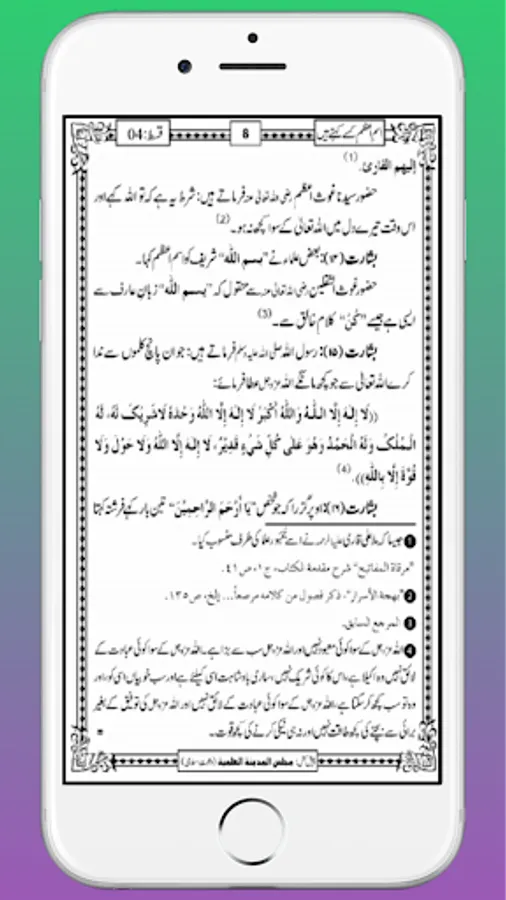 اسم اعظم کسے کہتے ہیں 8 قسط:04
إليهم القارئ. (1)
حضور سیدنا غوث اعظم رضی اللہ تعالی عنہ فرماتے ہیں: شرط یہ ہے کہ تو اللہ کہے اور
اس وقت تیرے دل میں اللہ تعالٰی کے سوا کچھ نہ ہو۔ (2)
بشارت (۱۴): بعض علماء نے "بسم الله" شریف کو اسم اعظم کہا۔
حضور غوث الثقلین رضی اللہ تعالی عنہ سے منقول کہ "بسم الله" زبانِ عارف سے
ایسی ہے جیسے "كُنْ" کلام خالق سے۔ (3)
بشارت (۱۵): رسول اللہ صلی اللہ علیہ وسلم فرماتے ہیں: جو ان پانچ کلموں سے ندا
کرے اللہ تعالٰی سے جو کچھ مانگے اللہ عزوجل عطا فرمائے:
((لَا إِلٰهَ إِلَّا اللّٰهُ وَاللّٰهُ أَكْبَرُ لَا إِلٰهَ إِلَّا اللّٰهُ وَحْدَهُ لَاشَرِيْكَ لَهُ، لَهُ
الْمُلْكُ وَلَهُ الْحَمْدُ وَهُوَ عَلَى كُلِّ شَيْءٍ قَدِيْرٌ، لَا إِلٰهَ إِلَّا اللّٰهُ وَلَا حَوْلَ وَلَا
قُوَّةَ إِلَّا بِاللّٰهِ)). (4)
بشارت (۱۶): اوپر گزرا کہ جو شخص "يَا أَرْحَمَ الرَّاحِمِيْنَ" تین بار کہے فرشتہ کہتا
1 جیسا کہ ملا علی قاری علیہ الرحمہ نے اسے جمہور علما کی طرف منسوب کیا۔
"مرقاة المفاتيح" شرح مقدمة الكتاب، ج١، ص٤١.
2 "بهجة الأسرار"، ذكر فصول من كلامه مرصعاً... إلخ، ص١٣٥.
3 المرجع السابق.
4 اللہ عزوجل کے سوا کوئی معبود نہیں اور اللہ عزوجل سب سے بڑا ہے۔ اللہ عزوجل کے سوا کوئی عبادت کے
لائق نہیں وہ اکیلا ہے، اس کا کوئی شریک نہیں، ساری بادشاہت اسی کیلئے ہے اور سب خوبیاں اسی کو، اور
وہ تو سب کچھ کر سکتا ہے، اللہ عزوجل کے سوا کوئی عبادت کے لائق نہیں اور اللہ عزوجل کی توفیق کے بغیر
برائی سے بچنے کی کچھ طاقت نہیں اور نہ ہی نیکی کرنے کی کچھ قوت۔
پیش کش: مجلس المدينة العلمية (دعوت اسلامی)